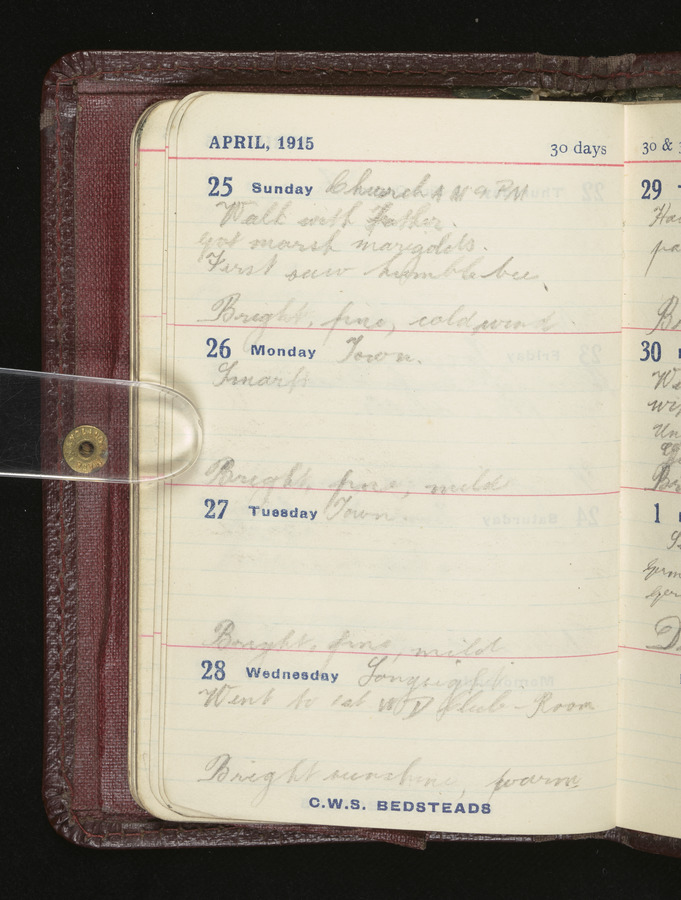 APRIL, 1915 30 days
25 Sunday Church A M & P M
Walk with Father.
Got marsh marigolds.
First saw humble bee
Bright, fine, cold wind.
26 Monday Town.
Smart
Bright, fine, mild
27 Tuesday Town.
Bright, fine, mild
28 Wednesday Longsight
Went to Club-Room
Bright sunshine, warm
C.W.S. BEDSTEADS
30 &
29
30
1